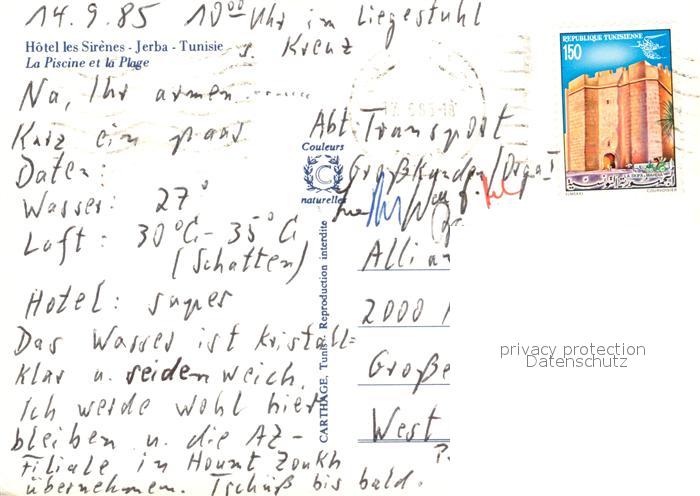 14.9.85 10⁰⁰ Uhr im Liegestuhl
s. Kreuz
Hôtel les Sirènes - Jerba - Tunisie
La Piscine et la Plage
Na, Ihr armen ........
Kurz ein paar
Daten:
Wasser: 27°
Luft: 30°C - 35°C
(Schatten)
Hotel: super
Das Wasser ist kristall=
klar u. seidenweich.
Ich werde wohl hier
bleiben u. die AZ-
Filiale in Hount Zoukh
übernehmen. Tschüß bis bald.
Couleurs
C
naturelles
CARTHAGE, Tunis - Reproduction interdite
REPUBLIQUE TUNISIENNE
150
الجمهورية التونسية
Abt. Transport
Großkunden/Orga I
Allian
2000
Große
West
P.
privacy protection
Datenschutz